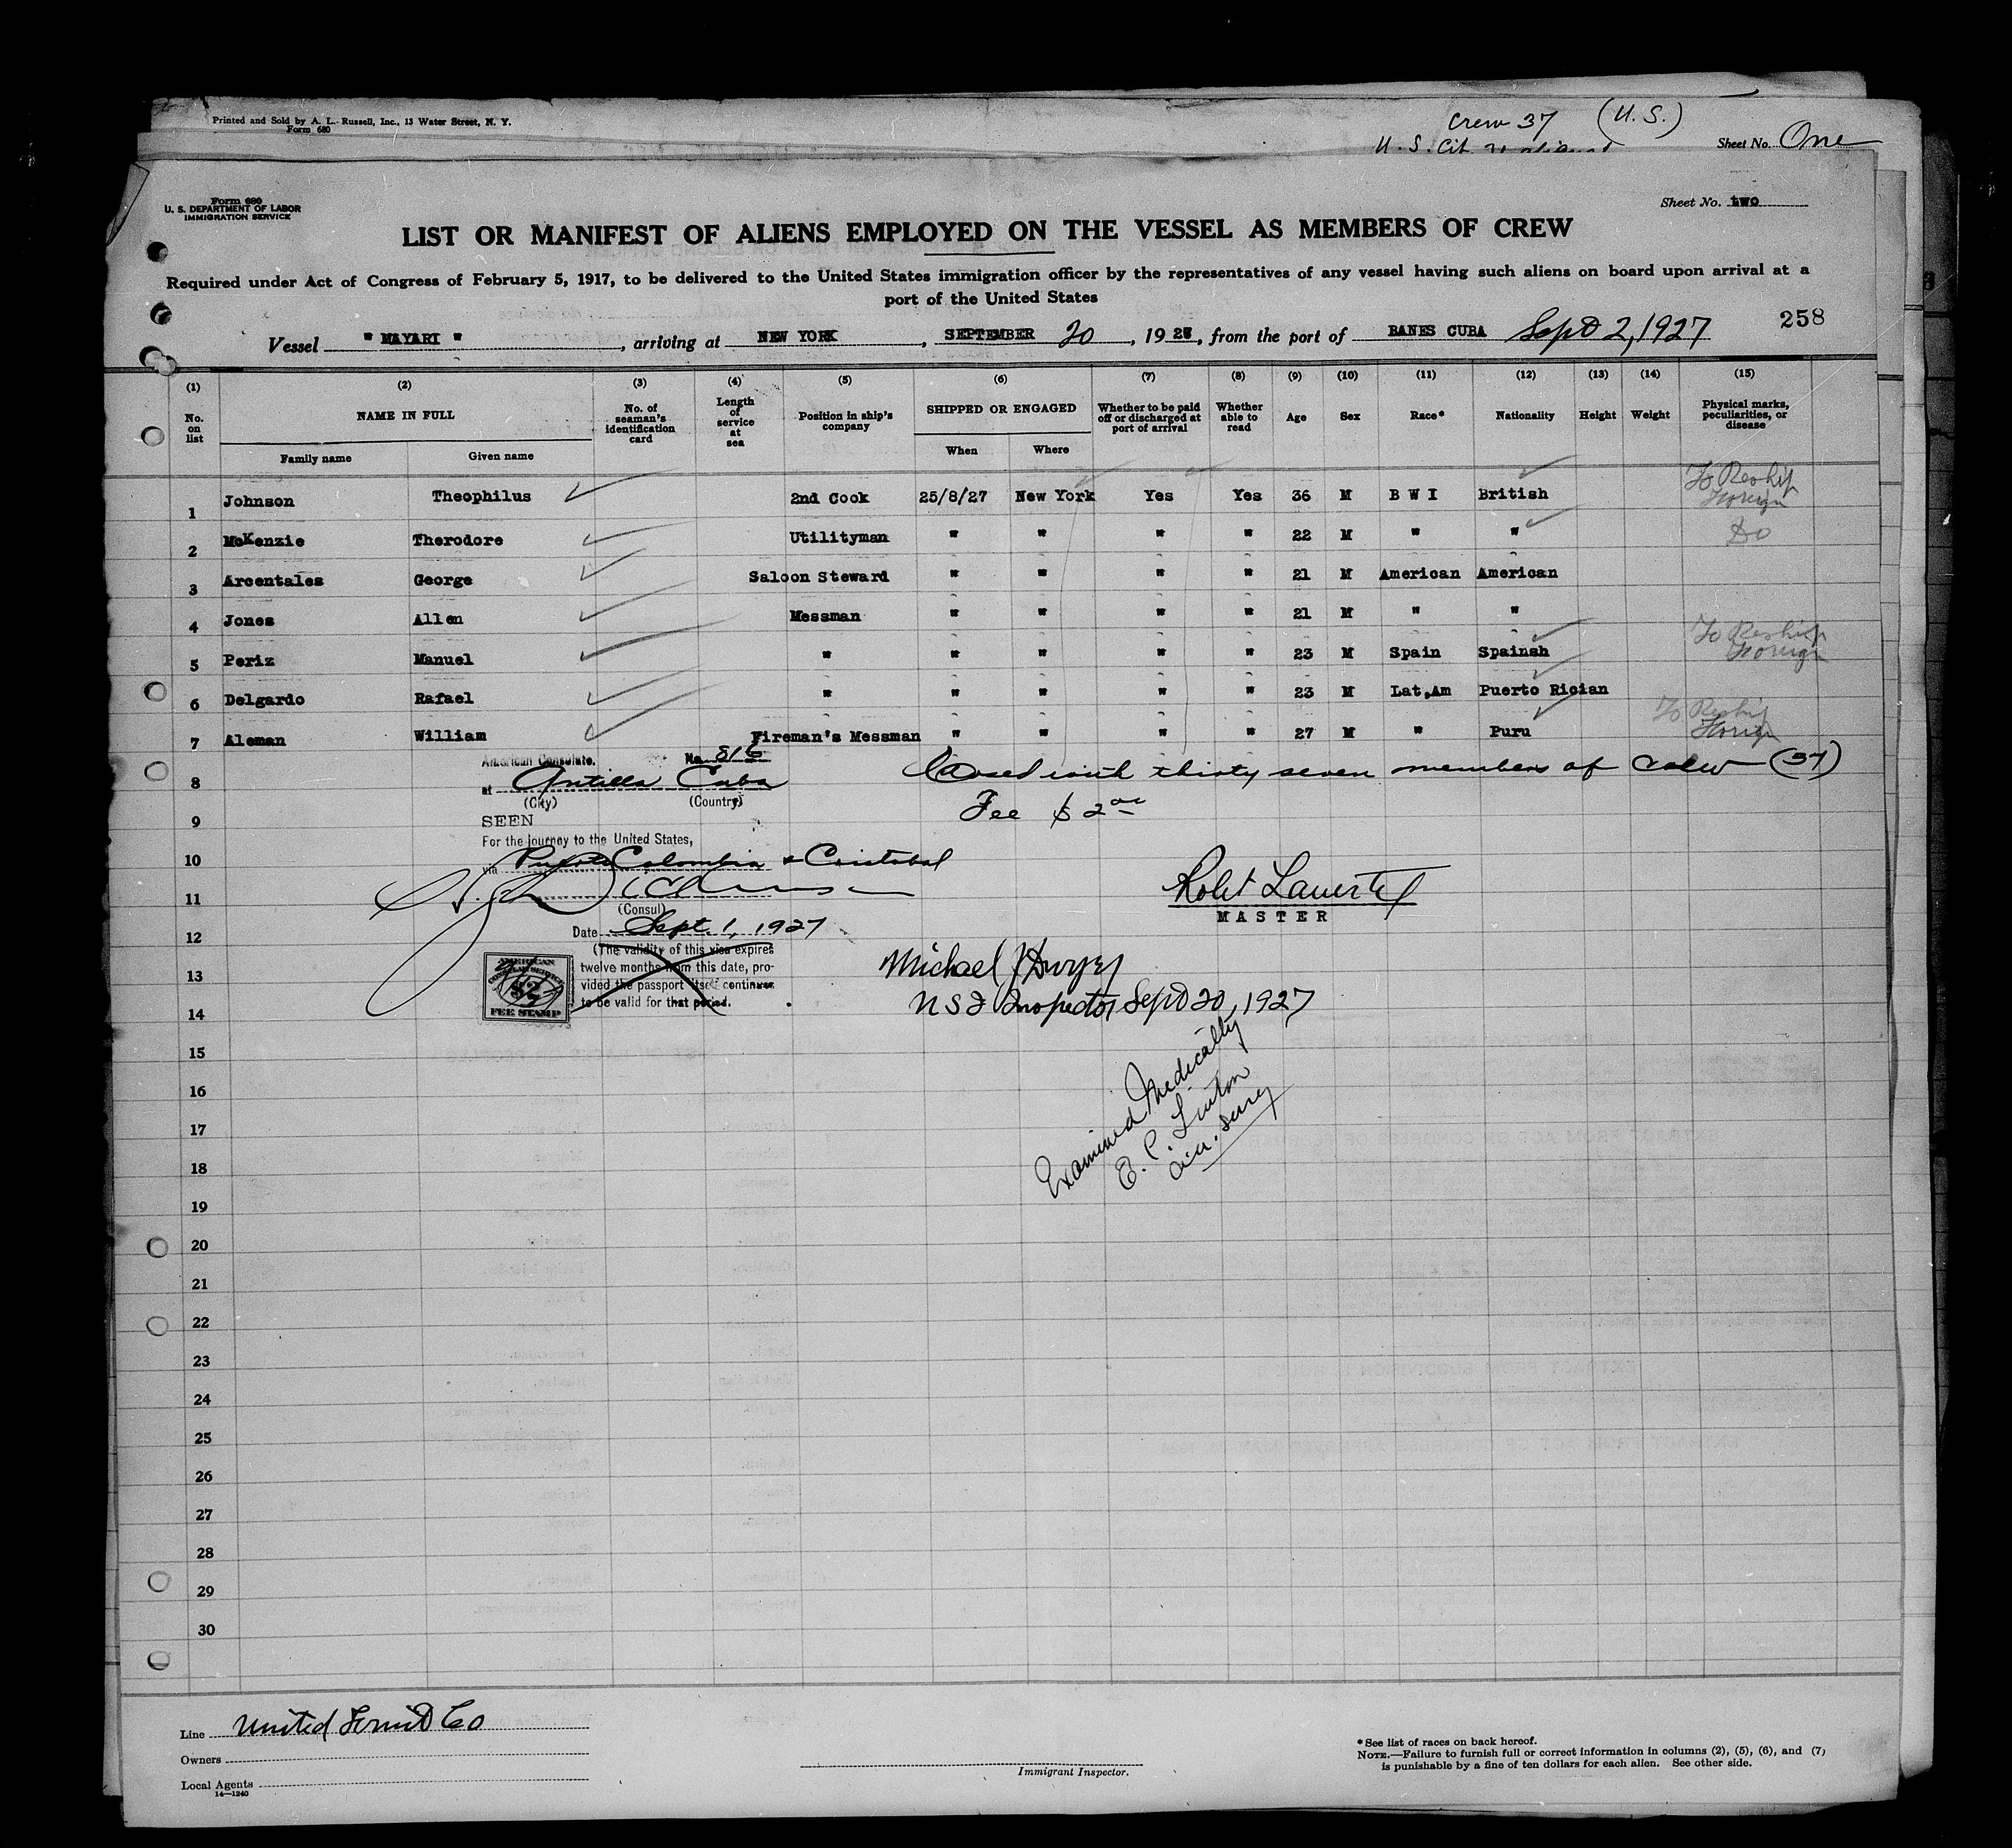 Printed and Sold by A. L. Russell, Inc., 13 Water Street, N. Y.
Form 680
Crew 37 (U. S.)
U. S. Cit.
Sheet No. One
Form 680
U. S. DEPARTMENT OF LABOR
IMMIGRATION SERVICE
Sheet No. two
LIST OR MANIFEST OF ALIENS EMPLOYED ON THE VESSEL AS MEMBERS OF CREW
Required under Act of Congress of February 5, 1917, to be delivered to the United States immigration officer by the representatives of any vessel having such aliens on board upon arrival at a
port of the United States
258
Vessel " MAYARI ", arriving at NEW YORK, SEPTEMBER 20, 1927, from the port of BANES CUBA Sept 2, 1927
(1) (2) (3) (4) (5) (6) (7) (8) (9) (10) (11) (12) (13) (14) (15)
No. on list NAME IN FULL Family name Given name No. of seaman's identification card Length of service at sea Position in ship's company SHIPPED OR ENGAGED When Where Whether to be paid off or discharged at port of arrival Whether able to read Age Sex Race* Nationality Height Weight Physical marks, peculiarities, or disease
1 Johnson Theophilus 2nd Cook 25/8/27 New York Yes Yes 36 M B W I British To Reship Foreign
2 McKenzie Therodore Utilityman " " " " 22 M " " Do
3 Arcentales George Saloon Steward " " " " 21 M American American
4 Jones Allen Messman " " " " 21 M " "
5 Periz Manuel " " " " " 23 M Spain Spainsh To Reship Foreign
6 Delgardo Rafael " " " " " 23 M Lat.Am Puerto Rician
7 Aleman William Fireman's Messman " " " " 27 M " Puru To Reship Foreign
American Consulate. No. 816
8 at Antilla Cuba
(City) (Country)
Closed with thirty seven members of crew (37)
Fee $ 2 00
9 SEEN
For the journey to the United States,
10 via Puerto Colombia & Cristobal
11
(Consul)
Robt Lawerte
MASTER
12 Date Sept. 1, 1927
(The validity of this visa expires
twelve months from this date, pro-
vided the passport itself continues
to be valid for that period.
AMERICAN
CONSULAR SERVICE
$2
FEE STAMP
13 Michael J Dwyer
14 U S I Inspector Sept 20, 1927
Examined Medically
E. C. Linton
15
16
17
18
19
20
21
22
23
24
25
26
27
28
29
30
Line United Fruit Co
Owners
Local Agents
14—1240
Immigrant Inspector.
*See list of races on back hereof.
NOTE.—Failure to furnish full or correct information in columns (2), (5), (6), and (7)
is punishable by a fine of ten dollars for each alien. See other side.